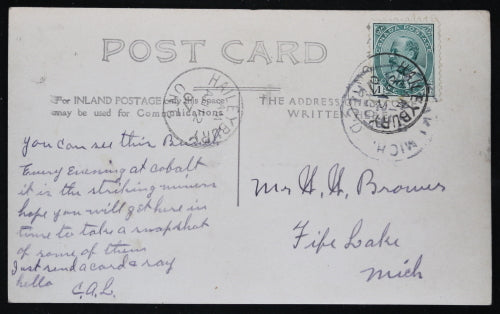 POST CARD
For INLAND POSTAGE only this Space
may be used for Communications
THE ADDRESS
WRITTEN
CANADA POSTAGE
HAILEYBURY
ONT
HAILEYBURY
MICH.
You can see this
Every Evening at cobalt
it is the striking miners
hope you will get here in
time to take a snapshot
of some of them
Just send a card & say
hello
C.A.L.
Mr H. H. Brower
Fife Lake
Mich